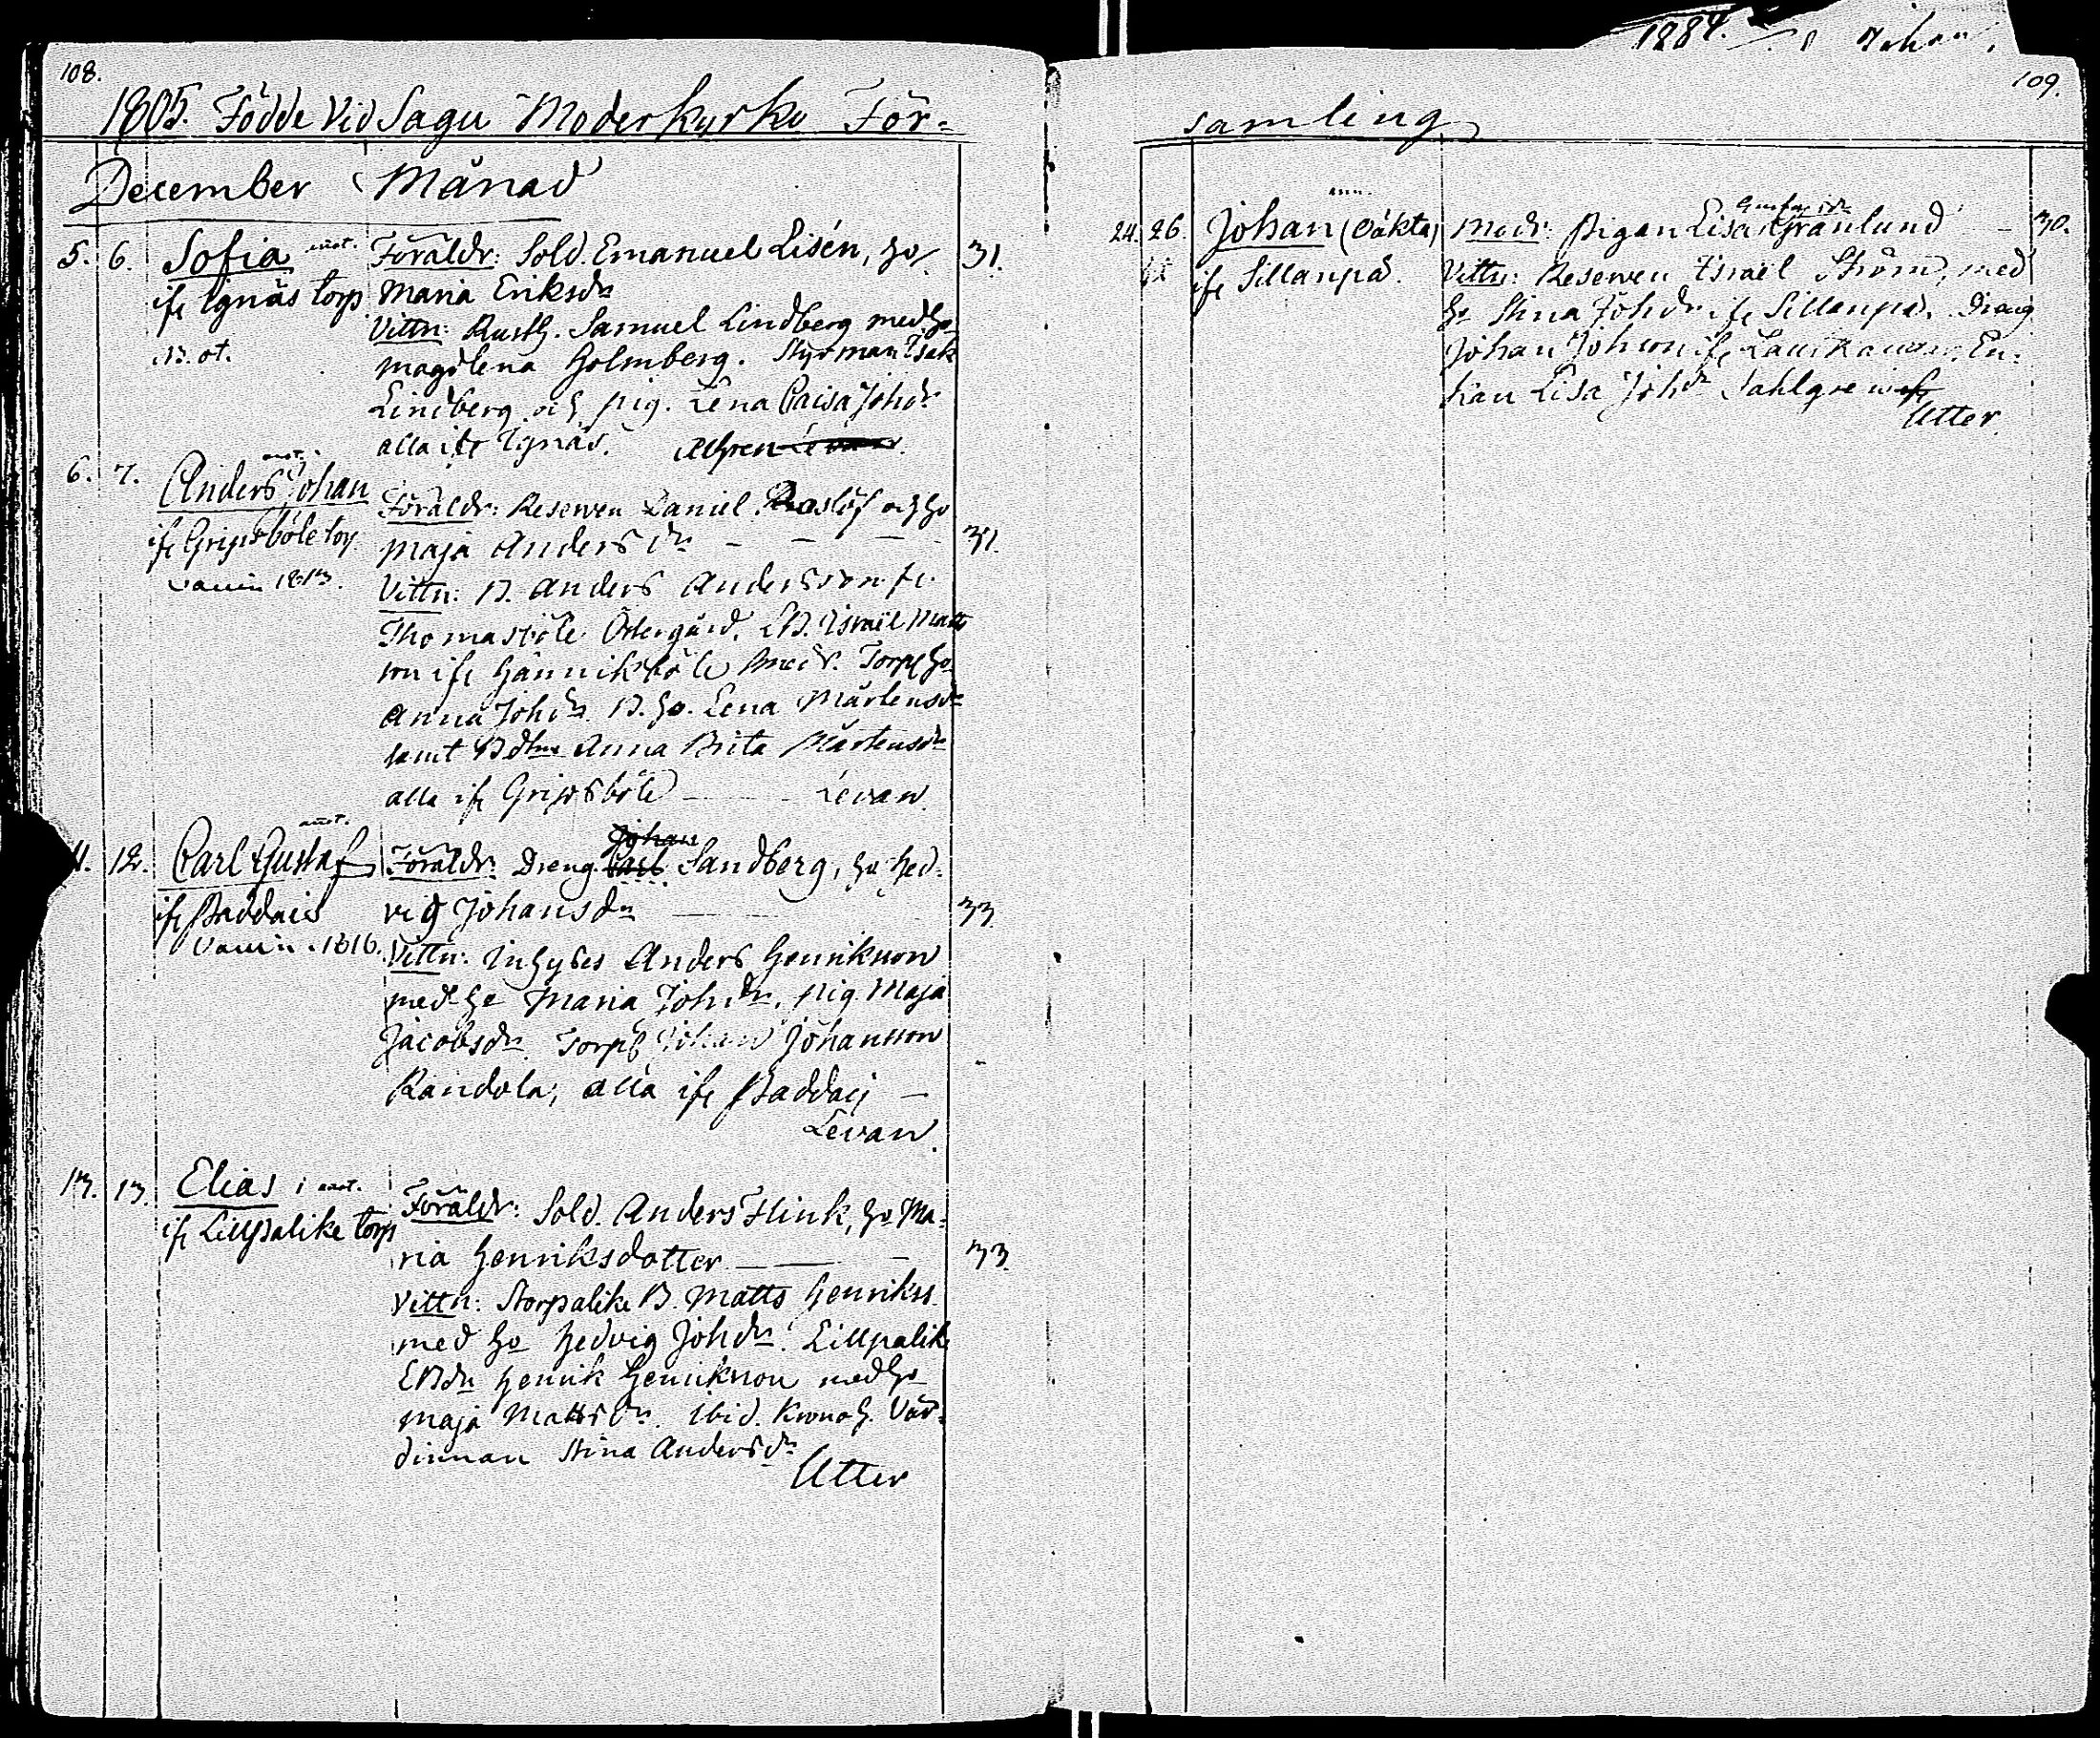 108.
1805. Födde Vid Sagu Moderkyrko För-
December Månad
5. 6. Sofia
ifr Ignäs torp
Föräldr: Sold. Emanuel Lisén, ho
Maria Eriksdr
31.
Vittn: Rusth. Samuel Lindberg med ho
Magdlena Holmberg. Styrman Isak
Lindberg och pig. Lena Caisa Johdr
alla ifr Ignäs.
6. 7. Anders Johan
ifr Gripsböle torp
Föräldr: Reserven Daniel Roslöf och ho
Maja Andersdr
31.
Vittn: B. Anders Andersson fr.
Thomasböle Östergård. LB. Israel Matts
son ifr Hänniksböle med. Torp ho
Anna Johdr. B. ho. Lena Mårtensdr
samt Bdtr Anna Brita Mårtensdr
alla ifr Gripsböle Levan.
11. 12. Carl Gustaf
ifr Paddais
1816.
Föräldr: Dreng. Johan Carl Sandberg, ho Hed-
vig Johansdr
33.
Vittn: Inhyses Anders Henriksson
med ho Maria Johdr. pig. Maja
Jacobsdr. Torp Johan Johansson
Randola, alla ifr Paddais
Levan.
13. 13. Elias
ifr Lillpalike torp
Föräldr: Sold. Anders Flink, ho Ma-
ria Henriksdotter
33.
Vittn: Storpalike B. Matts Henrikss.
med ho Hedvig Johdr. Lillpalike
LBdn Henrik Henriksson med ho
Maja Mattsdr. ibid. Kronoh. Vär-
dinnan Stina Andersdr
Utter
1884. Johan
109.
samling
24. 26. Johan (Oäkta)
ifr Sillanpä.
Modr: Pigan Lisa Gustafsdr Granlund
30.
Vittn: Reserven Israel Ström, med
ho Stina Johdr ifr Sillanpä. Dreng
Johan Johsson ifr En-
kan Lisa Johdr Sahlgren
Utter.